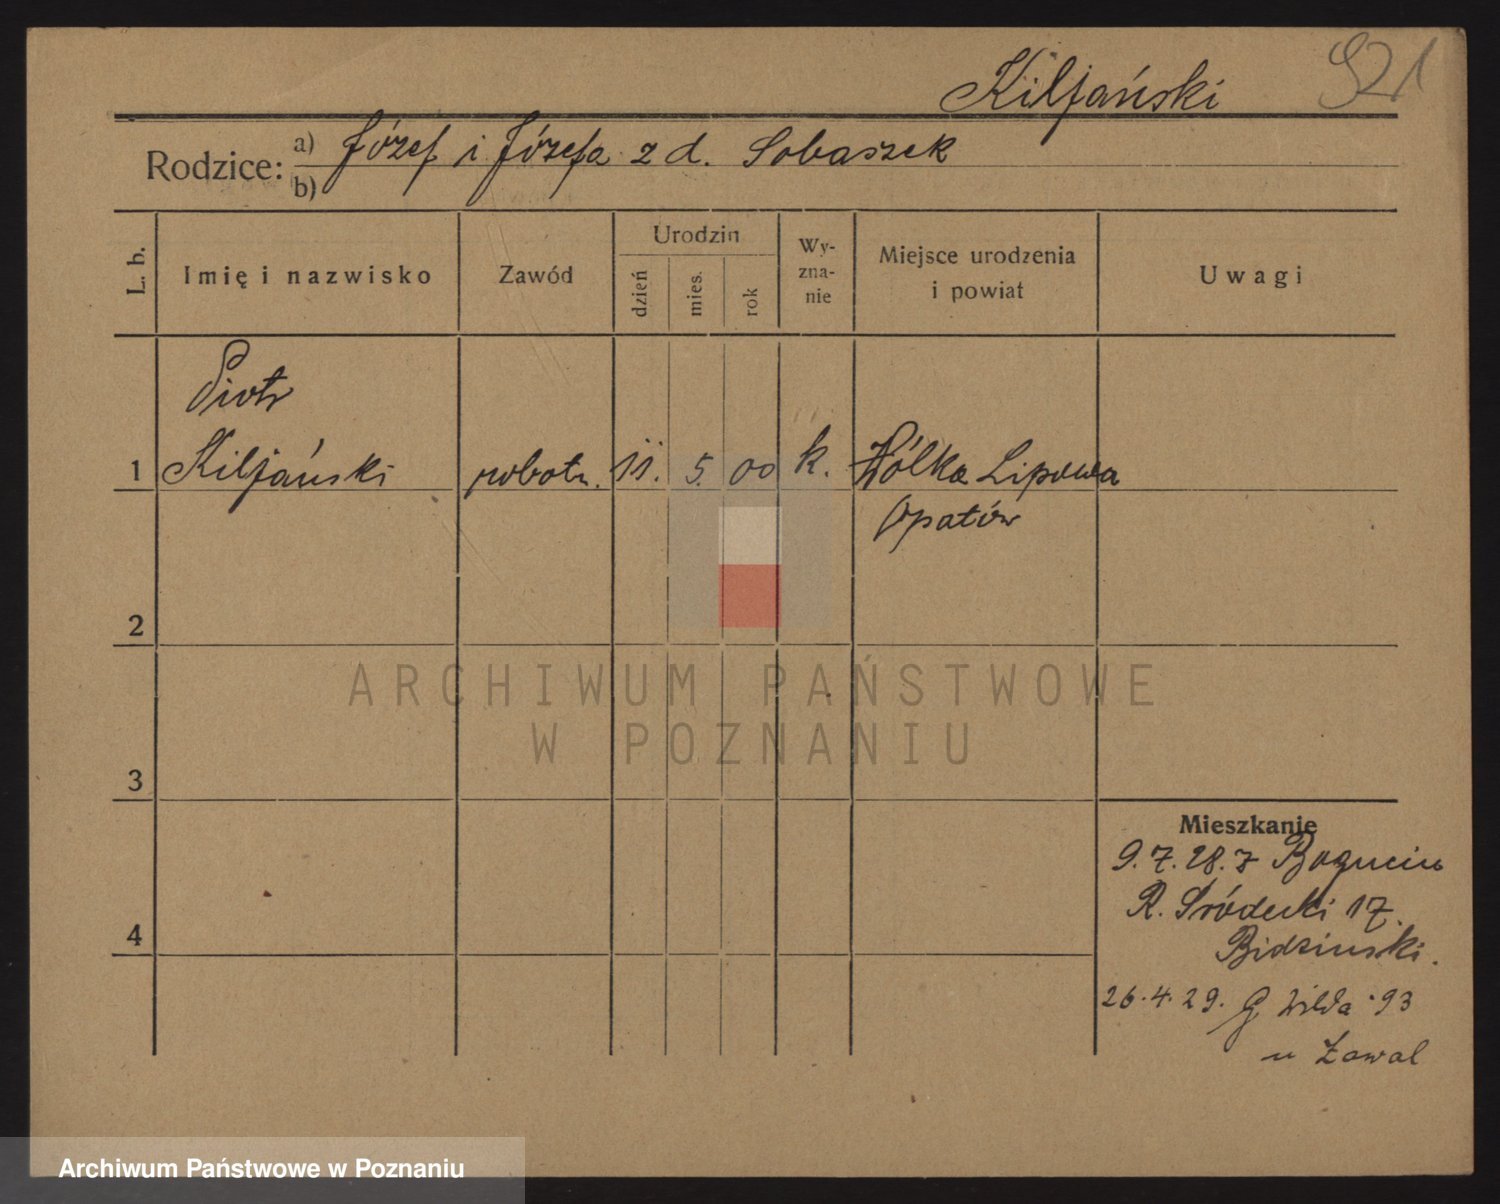 Kiljański 921
Rodzice: a) Józef i Józefa z d. Sobaszek
b)
L. b. Imię i nazwisko Zawód Urodzin dzień mies. rok Wy-zna-nie Miejsce urodzenia i powiat Uwagi
Piotr
1 Kiljański robotn. 11. 5. 00 k. Wólka Lipowa
Opatów
2
ARCHIWUM PAŃSTWOWE
W POZNANIU
3
Mieszkanie
9.7.28. z
R. Śródecki 17.
4
Bidziński.
26.4.29. G Wilda 93
u Zawal
Archiwum Państwowe w Poznaniu